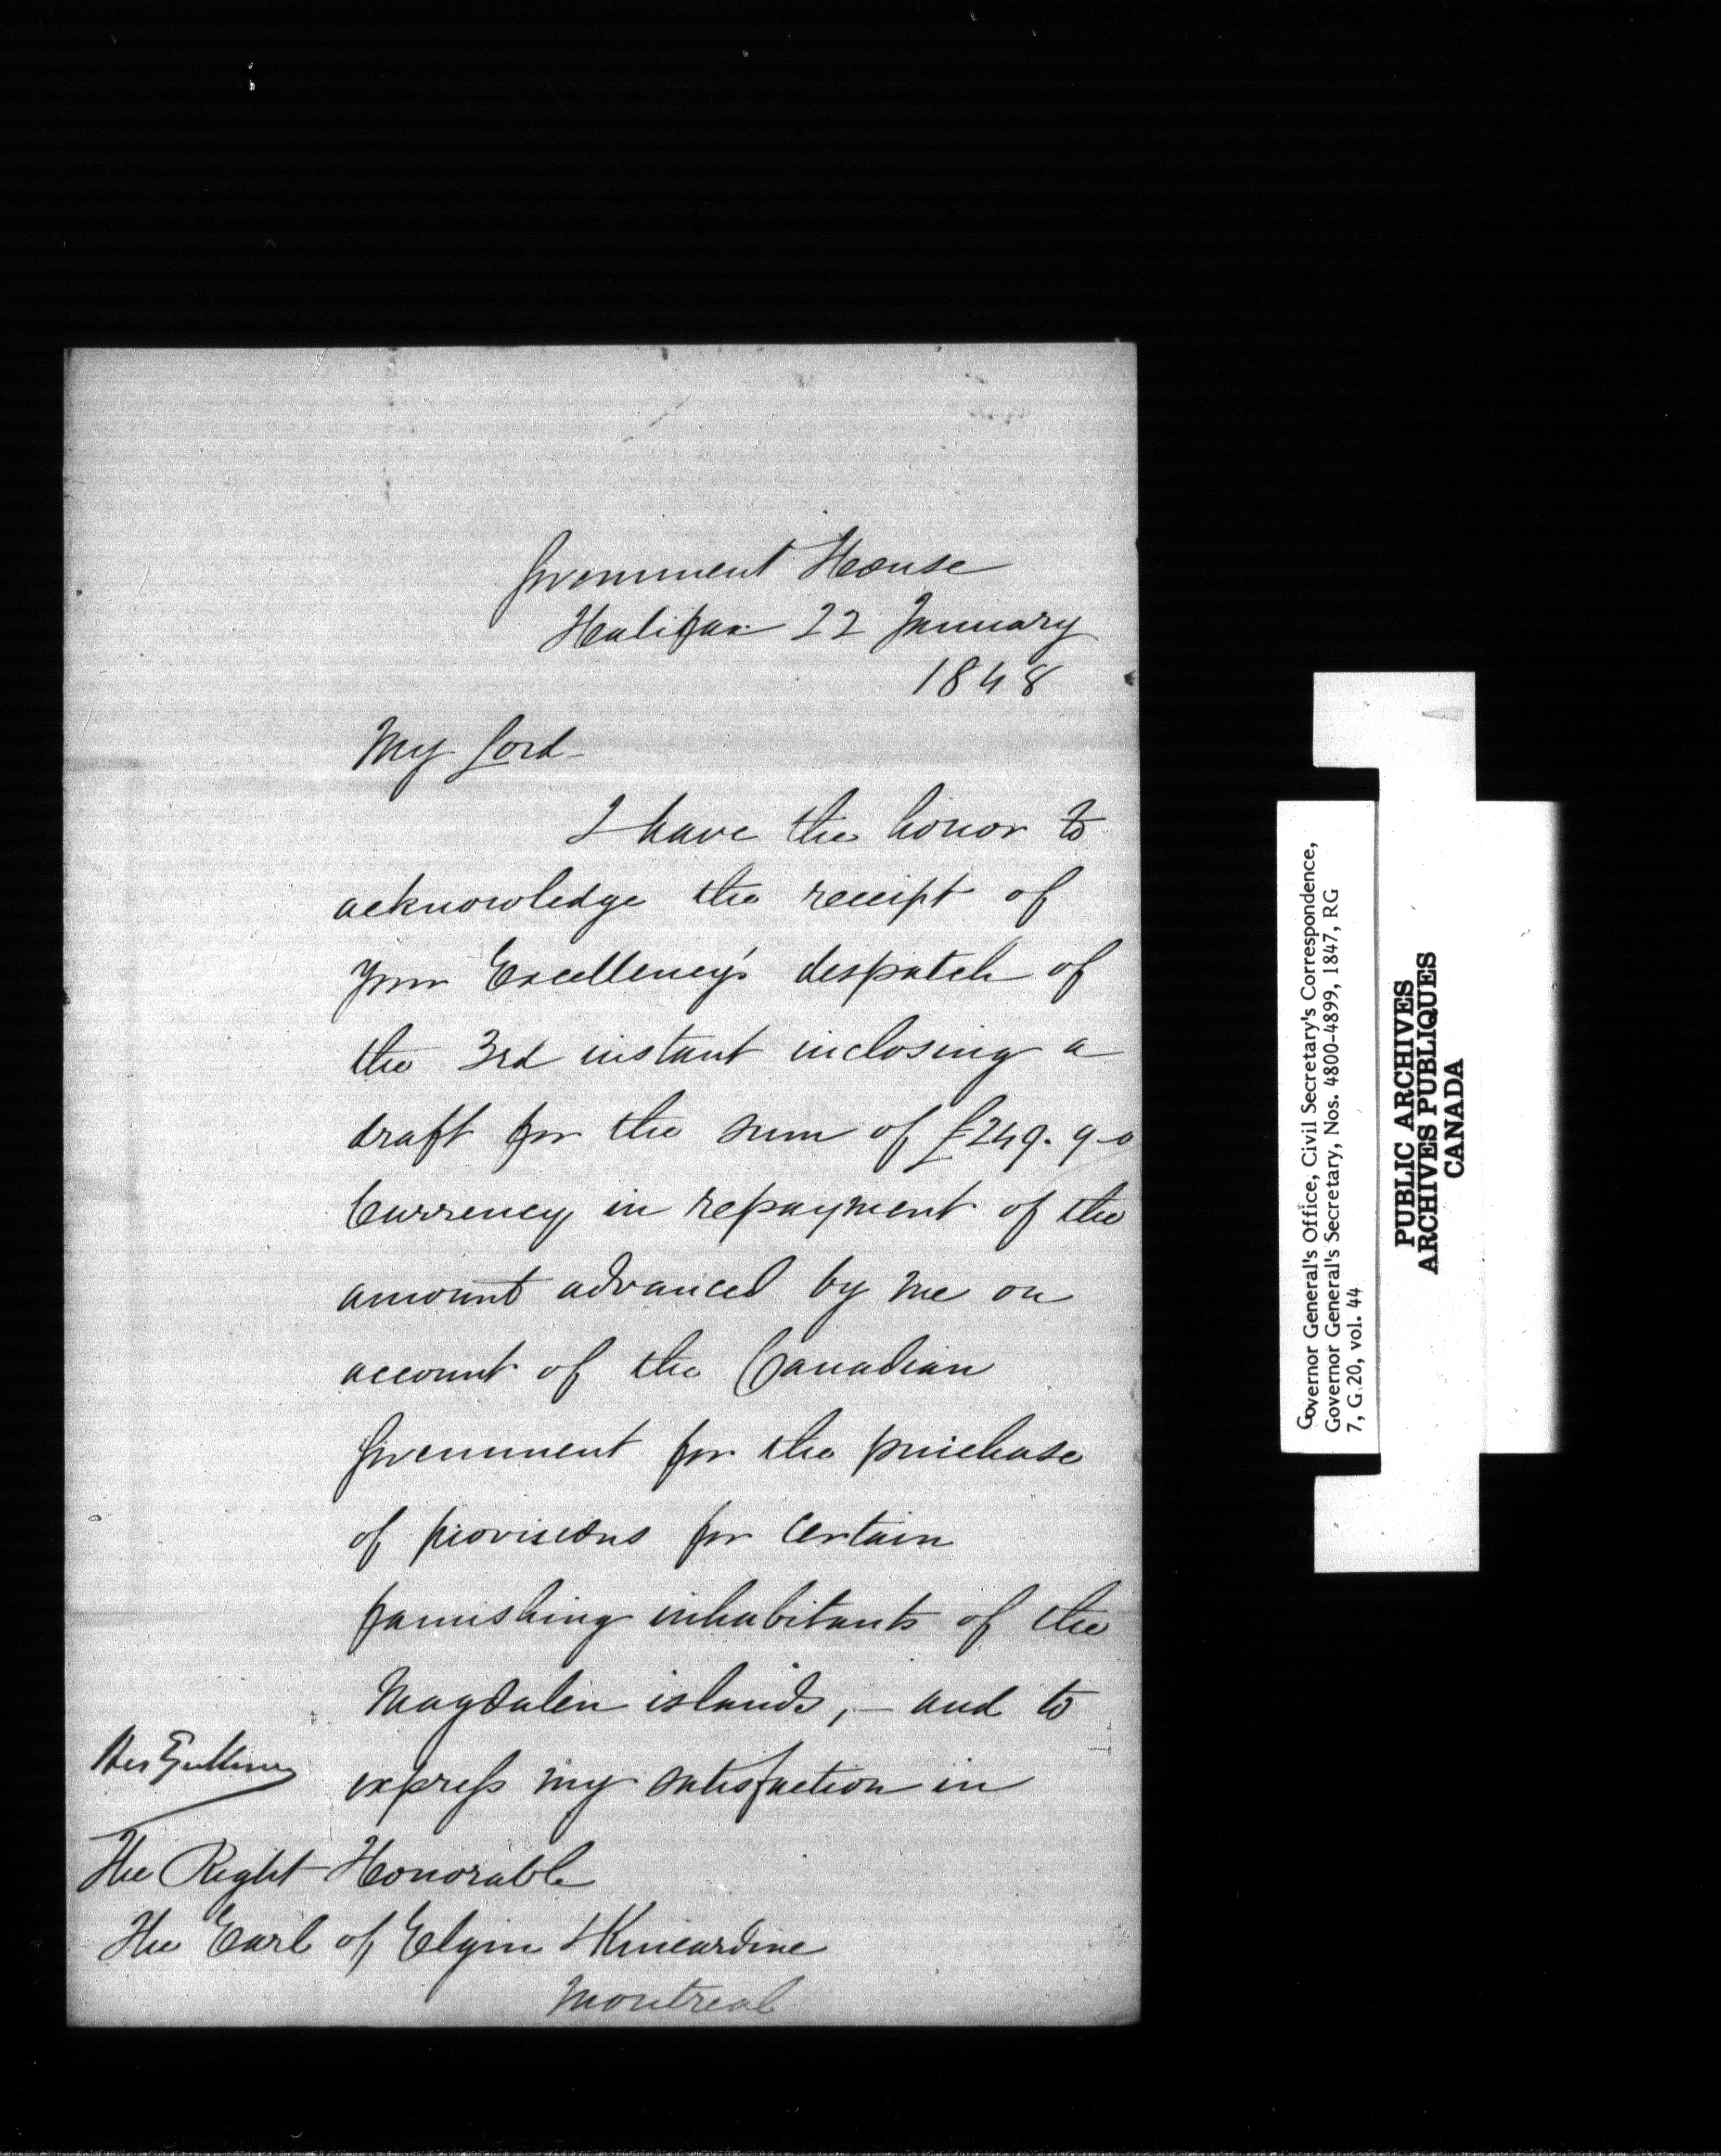 Government House
Halifax 22 January
1848
My Lord -
I have the honor to
acknowledge the receipt of
your Excellency's despatch of
the 3rd instant inclosing a
draft for the sum of £249. 9-0
Currency in repayment of the
amount advanced by me on
account of the Canadian
Government for the purchase
of provisions for certain
famishing inhabitants of the
Magdalen islands, - and to
express my satisfaction in
His Excellency
The Right Honorable
The Earl of Elgin & Kincardine
Montreal
Governor General's Office, Civil Secretary's Correspondence,
Governor General's Secretary, Nos. 4800-4899, 1847, RG
7, G 20, vol. 44
PUBLIC ARCHIVES
ARCHIVES PUBLIQUES
CANADA